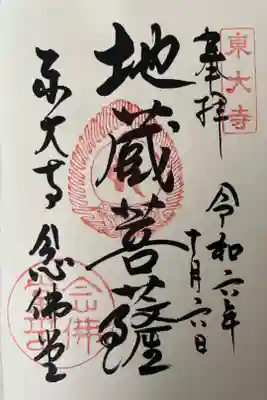 東大寺
奉拝
令和六年
十月六日
地蔵菩薩
東大寺 念佛堂
念佛